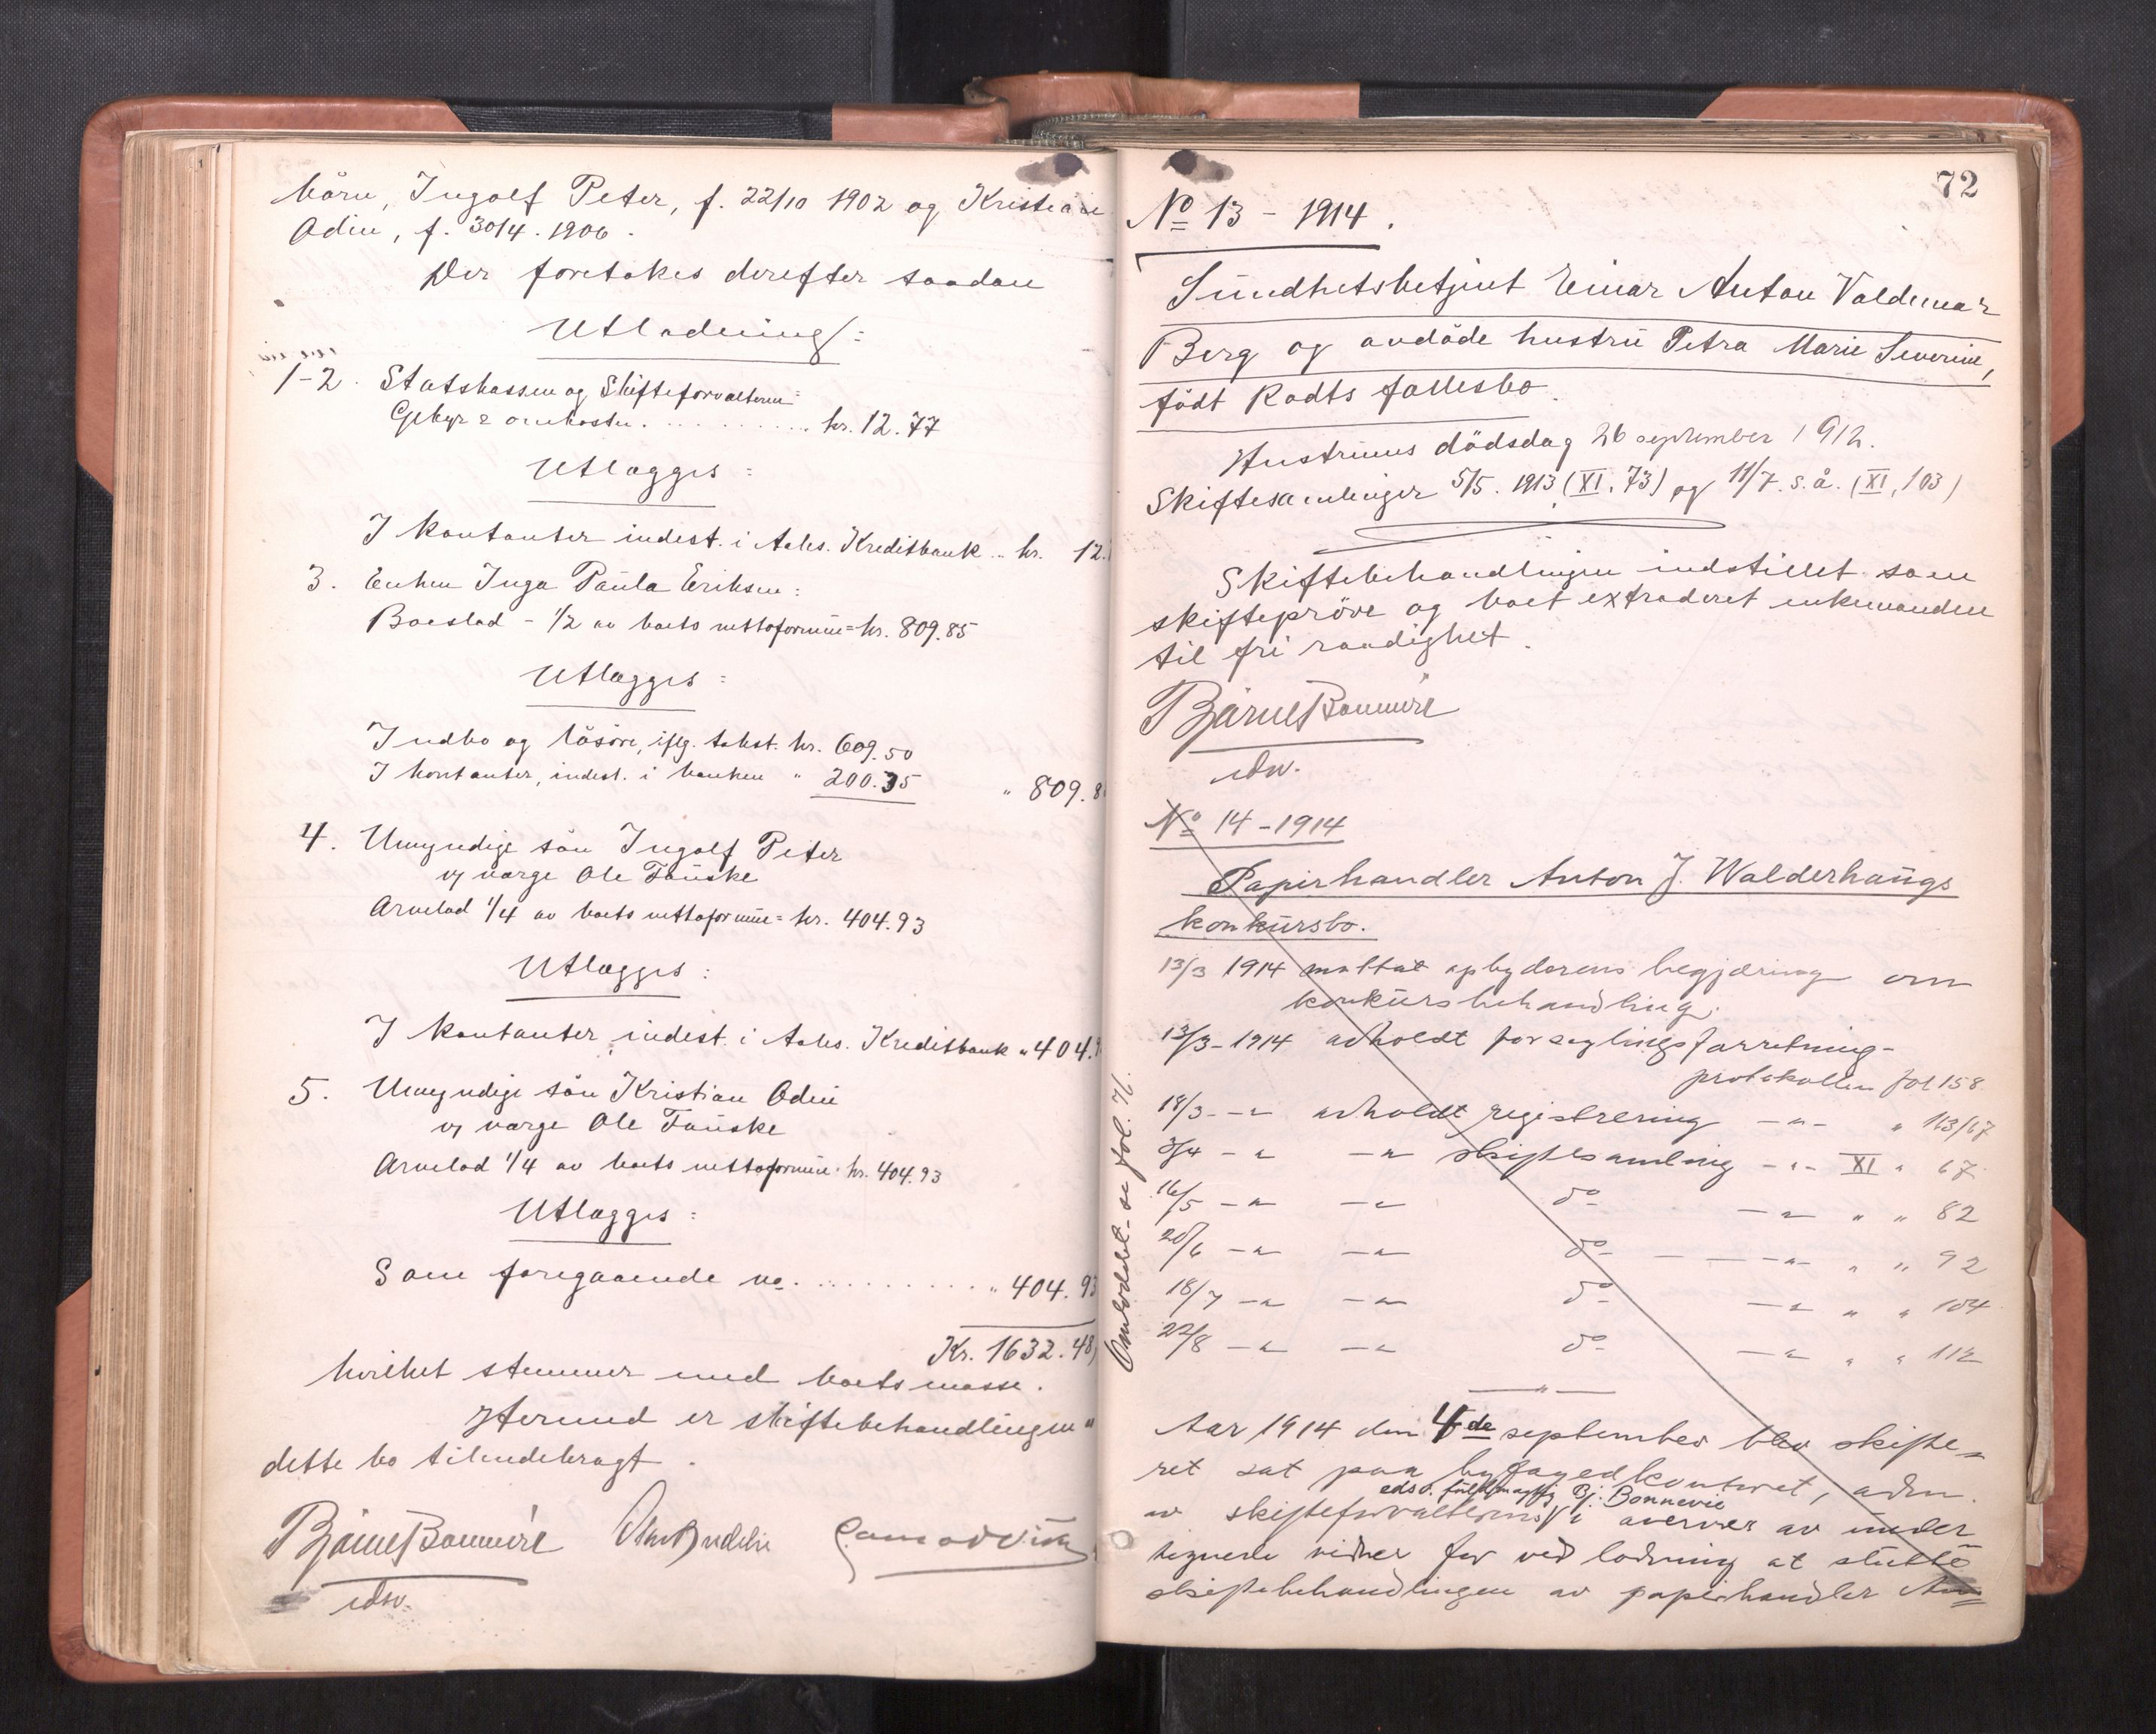 börn, Ingolf Peter, f. 22/10 1902 og Kristian
Odin, f. 30/4. 1906.
Der foretakes derefter saadan
Utlodning:
1-2. Statskassen og Skifteforvalteren:
Gebyr & omkostn. . . . . . . . . . . kr. 12.77
Utlægges:
I kontanter indest. i Aales. Kreditbank .. kr. 12.
3. Enken Inga Paula Eriksen:
Boeslod - 1/2 av boets nettoformue = kr. 809.85
Utlægges:
Indbo og lösöre, iflg. takst. kr. 609.50
I kontanter, indest. i banken " 200.35
" 809.8
4. Umyndige sön Ingolf Peter
v/ værge Ole Fauske
Arvelod 1/4 av boets nettoformue = kr. 404.93
Utlægges:
I kontanter indest. i Aales. Kreditbank " 404.9
5. Umyndige sön Kristian Odin
v/ værge Ole Fauske
Arvelod 1/4 av boets nettoformue: kr. 404.93
Utlægges:
Som foregaaende no. . . . . . . . . . " 404.93
Kr. 1632.48,
hvilket stemmer med boets masse.
Hermed er skiftebehandlingen i
dette bo tilendebragt.
Bjarne Bonnevie
edsv.
72
No 13 - 1914.
Sundhetsbetjent Einar Anton Valdemar
Berg og avdöde hustru Petra Marie Severine,
födt Rødts fællesbo.
Hustruens dödsdag 26 september 1912.
Skiftesamlinger 5/5. 1913 (XI, 73) og 11/7. s.å. (XI, 103)
Skiftebehandlingen indstillet som
skiftepröve og boet extraderet enkemanden
til fri raadighet.
Bjarne Bonnevie
edsv.
No 14 - 1914
Papirhandler Anton J. Walderhaugs
konkursbo.
13/3 1914 mottat opbyderens begjæring om
konkursbehandling.
13/3 - 1914 avholdt forseglingsforretning -
protokollen fol 158
18/3 - " - avholdt registrering - " - " 163/67
3/4 - " - " skiftesamling - " - XI " 67
16/5 - " - " do - " " " 82
20/6 - " - " do - " " " 92
18/7 - " - " do - " " " 104
22/8 - " - " do - " " " 112
Omloddet - se fol. 76.
Aar 1914 den 4de september blev skifte-
ret sat paa byfogedkontoret, adm.
eds. fuldmægtig Bj. Bonnevie
av skifteforvalterens V i overvær av under
tegnede vidner for ved lodning at slutte
skiftebehandlingen av papirhandler An-